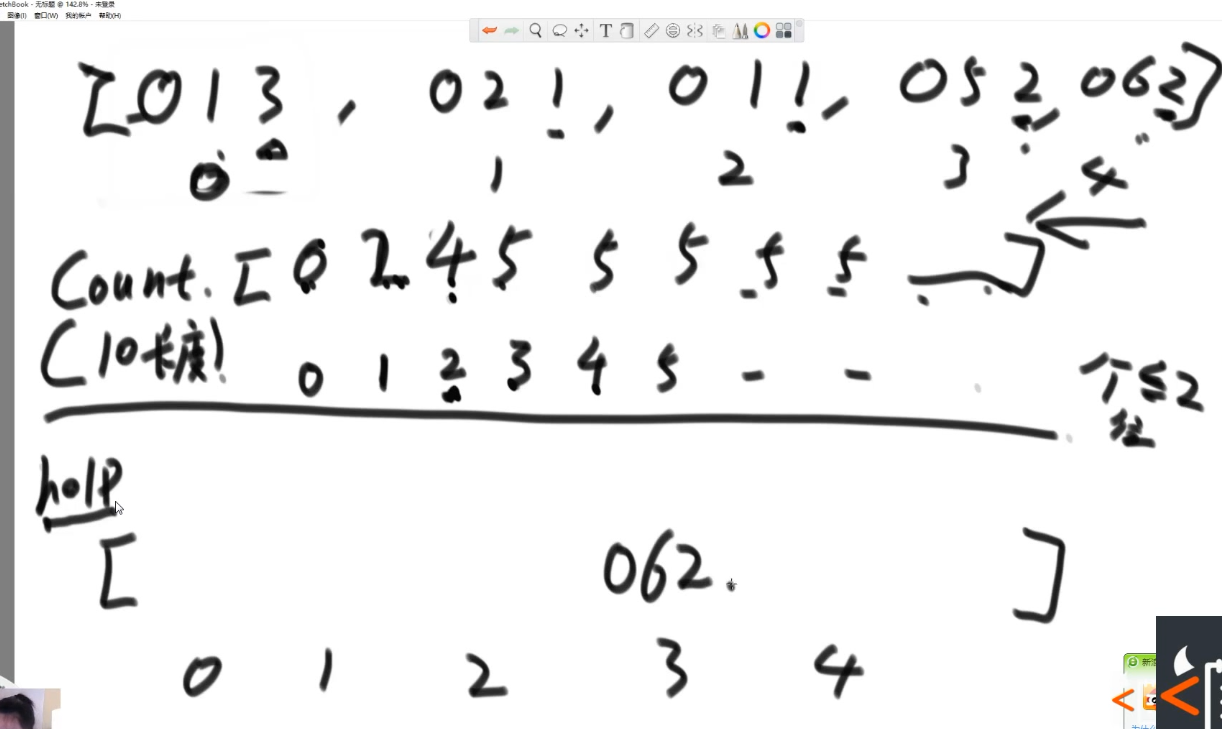 etchBook - 无标题 @ 142.8% - 未登录
图像(I) 窗口(W) 我的帐户 帮助(H)
T
[013, 021, 011, 052, 062]
0 1 2 3 4
Count. [0 2 4 5 5 5 5 5 ]
(10长度) 0 1 2 3 4 5 - -
个≤2
help
[ 062. ]
0 1 2 3 4